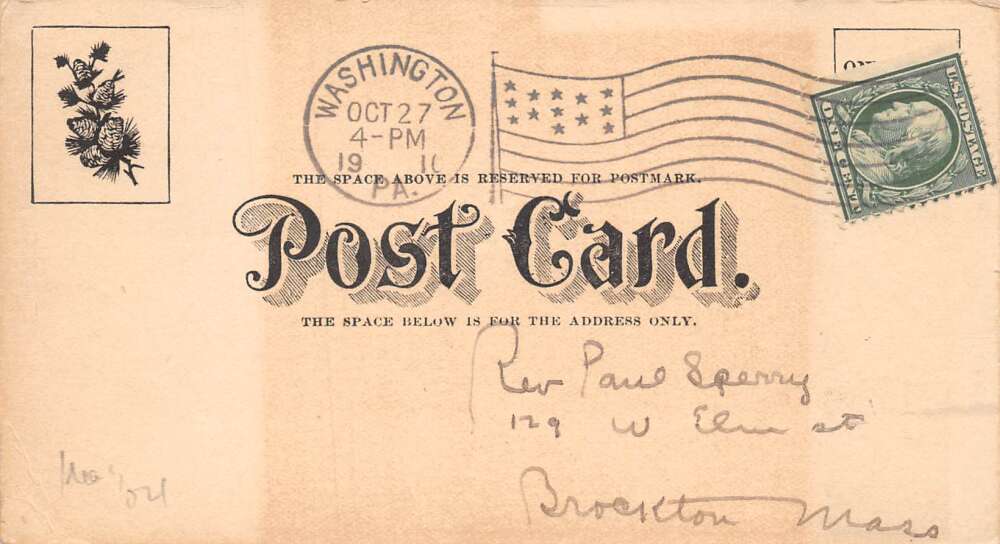 WASHINGTON
OCT 27
4-PM
19 10
PA.
THE SPACE ABOVE IS RESERVED FOR POSTMARK.
U.S. POSTAGE
ONE CENT
Post Card.
THE SPACE BELOW IS FOR THE ADDRESS ONLY.
Rev Paul Sperry
129 W Elm st
Brockton Mass